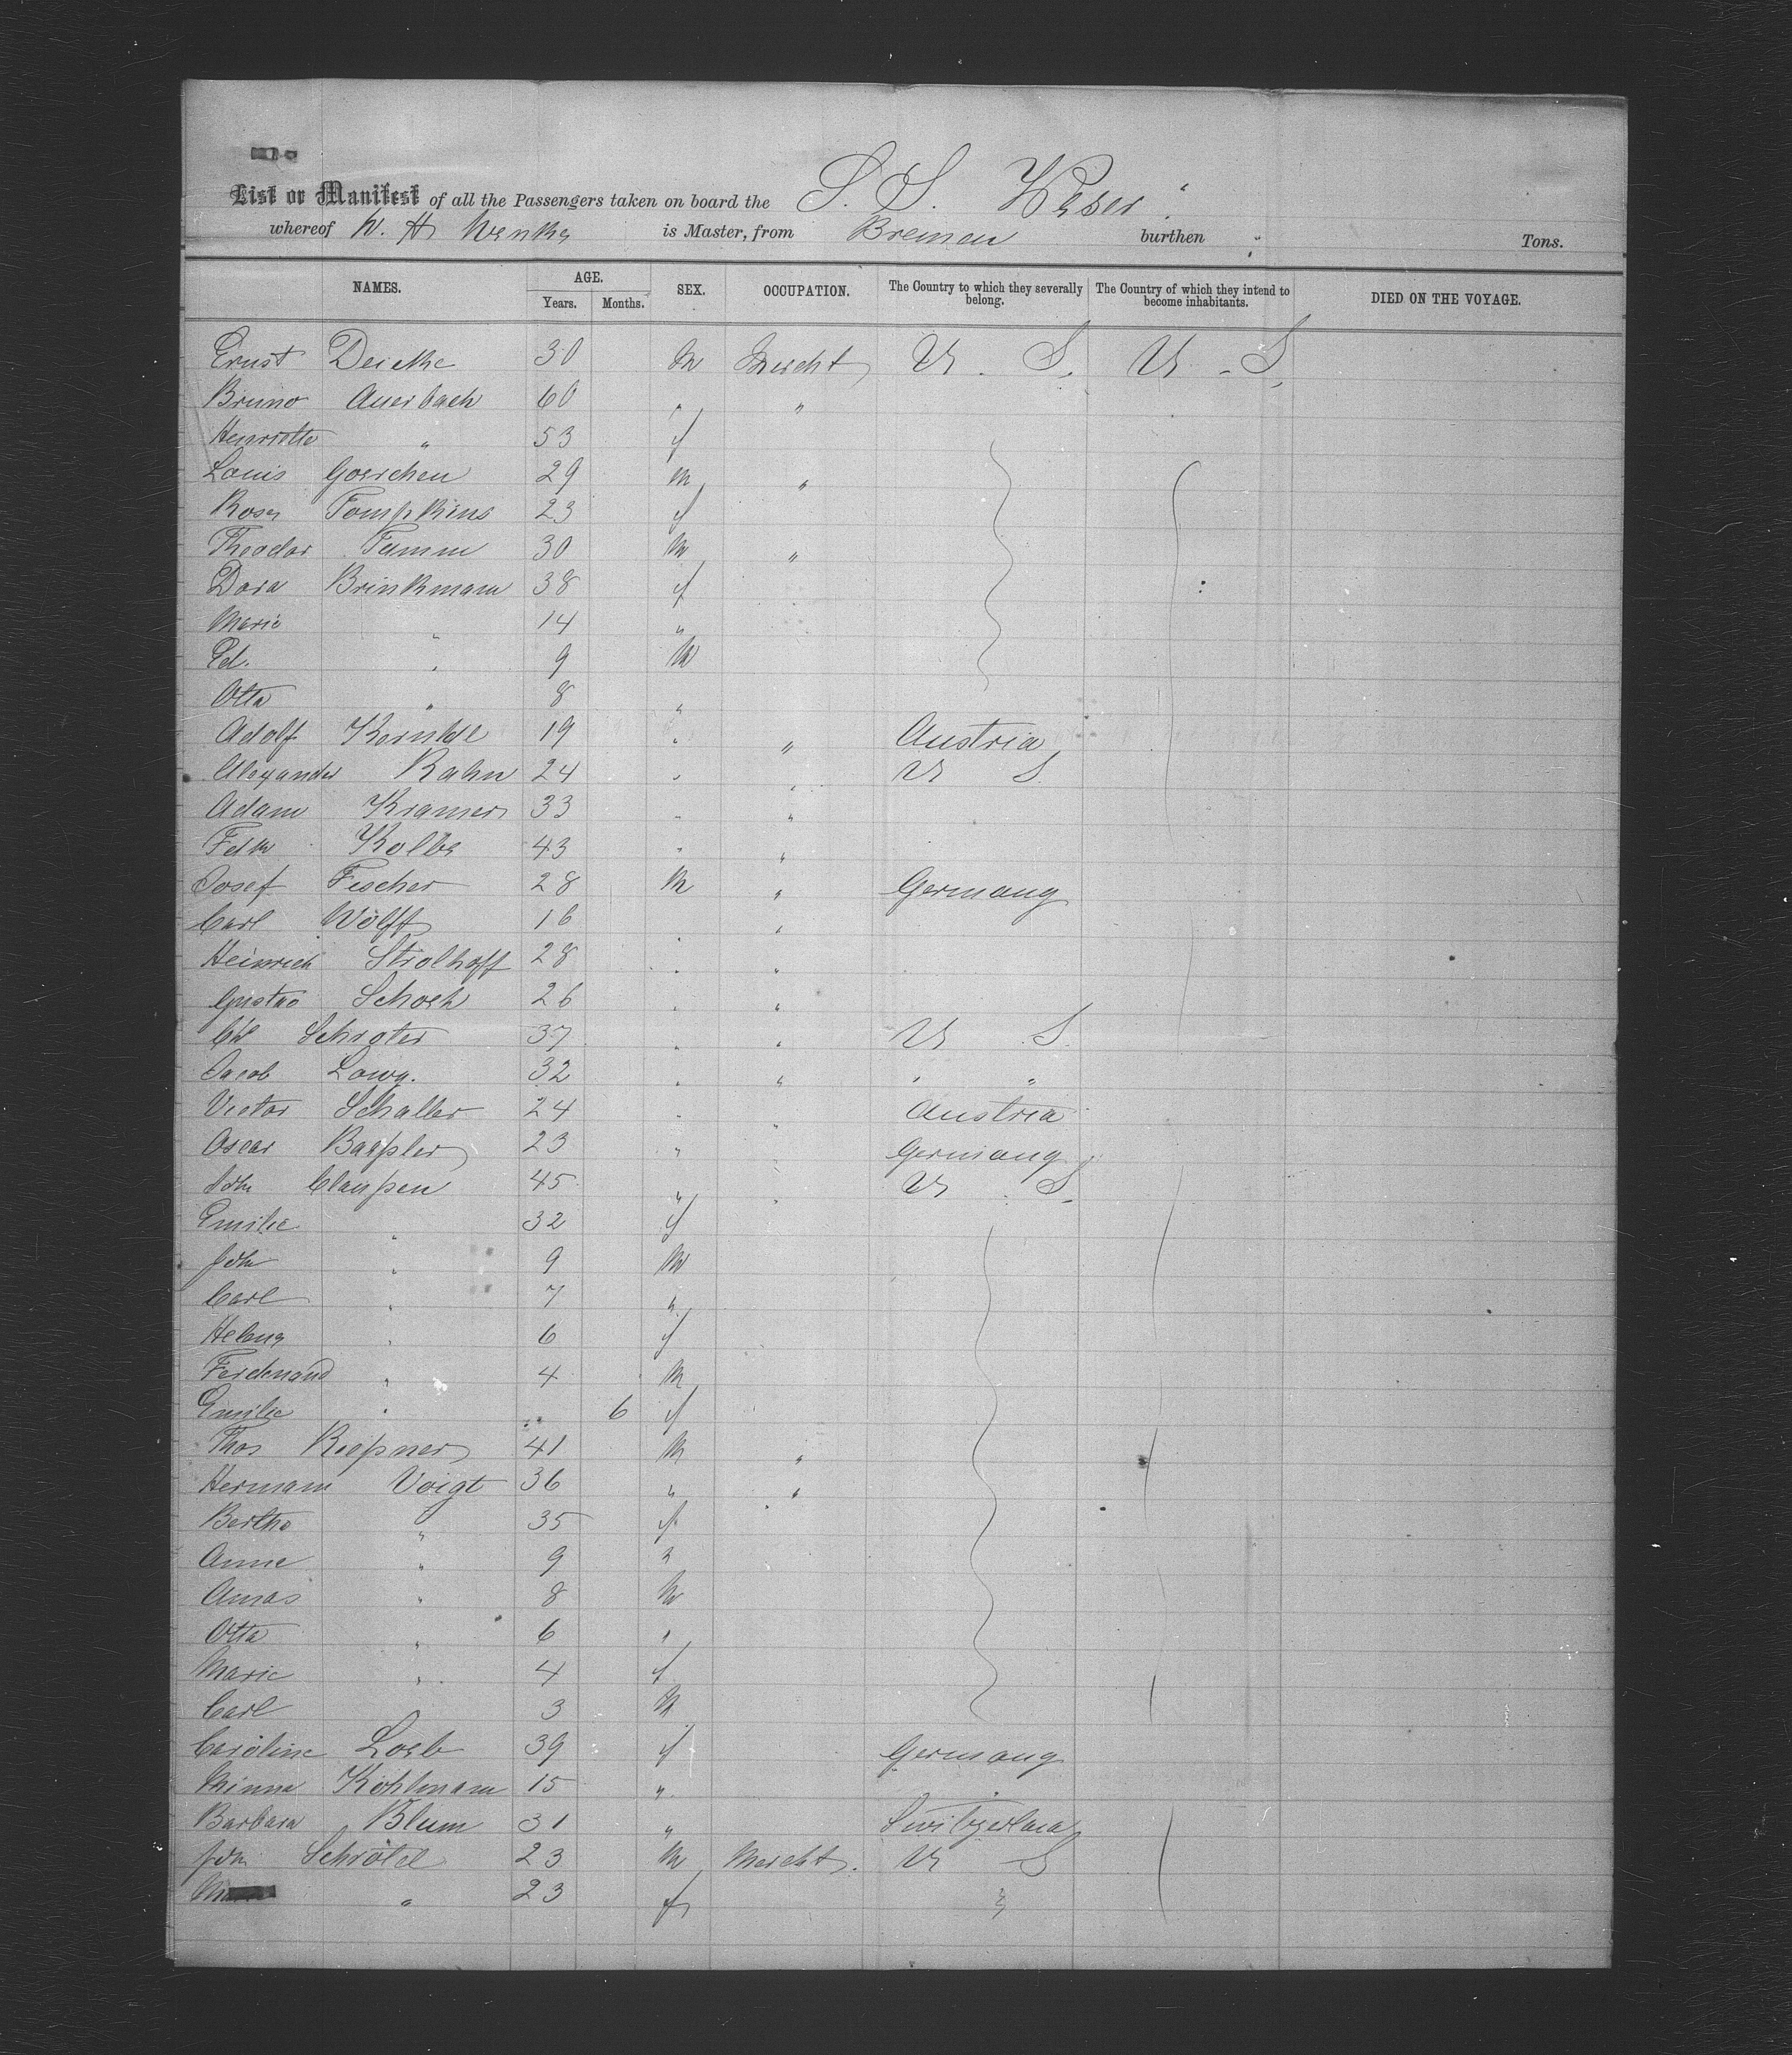 List or Manifest of all the Passengers taken on board the S. S. Weser
whereof W. H. Wenke is Master, from Bremen burthen Tons.
NAMES. AGE. Years. Months. SEX. OCCUPATION. The Country to which they severally belong. The Country of which they intend to become inhabitants. DIED ON THE VOYAGE.
Ernst Deicke 30 m Mercht U. S. U. S.
Bruno Auerbach 60 " "
Henriette " 53 f
Louis Goerchen 29 m "
Rosa Tompkins 23 f
Theodor Tamm 30 m "
Dora Brinkmann 38 f
Marie " 14 "
Ed. " 9 m
Otto " 8 "
Adolf 19 " " Austria
Alexander Rahn 24 " " U S.
Adam Kramer 33 " "
Kolbe 43 " "
Josef Fischer 28 m " Germany
Carl Wolff 16 " "
Heinrich Strolhoff 28 " "
Gustav Schoch 26 " "
Schroter 37 " " U S.
Jacob Lowy. 32 " " " "
Victor Schaller 24 " " Austria
Oscar Baeßler 23 " " Germany
John Claußen 45 " " U S.
Emilie " 32 f
John " 9 m
Carl " 7 "
Helena " 6 f
Ferdinand " 4 m
Emilie " " 6 f
Thos Rießner 41 m "
Hermann Voigt 36 " "
Bertha " 35 f
Anna " 9 "
" 8 m
Otto " 6 "
Marie " 4 f
Carl " 3 m
Caroline Loeb 39 f Germany
Minna Kohlmann 15 " "
Barbara Blum 31 " Switzerland
John Schrötel 23 m Mercht. U S
" 23 f "